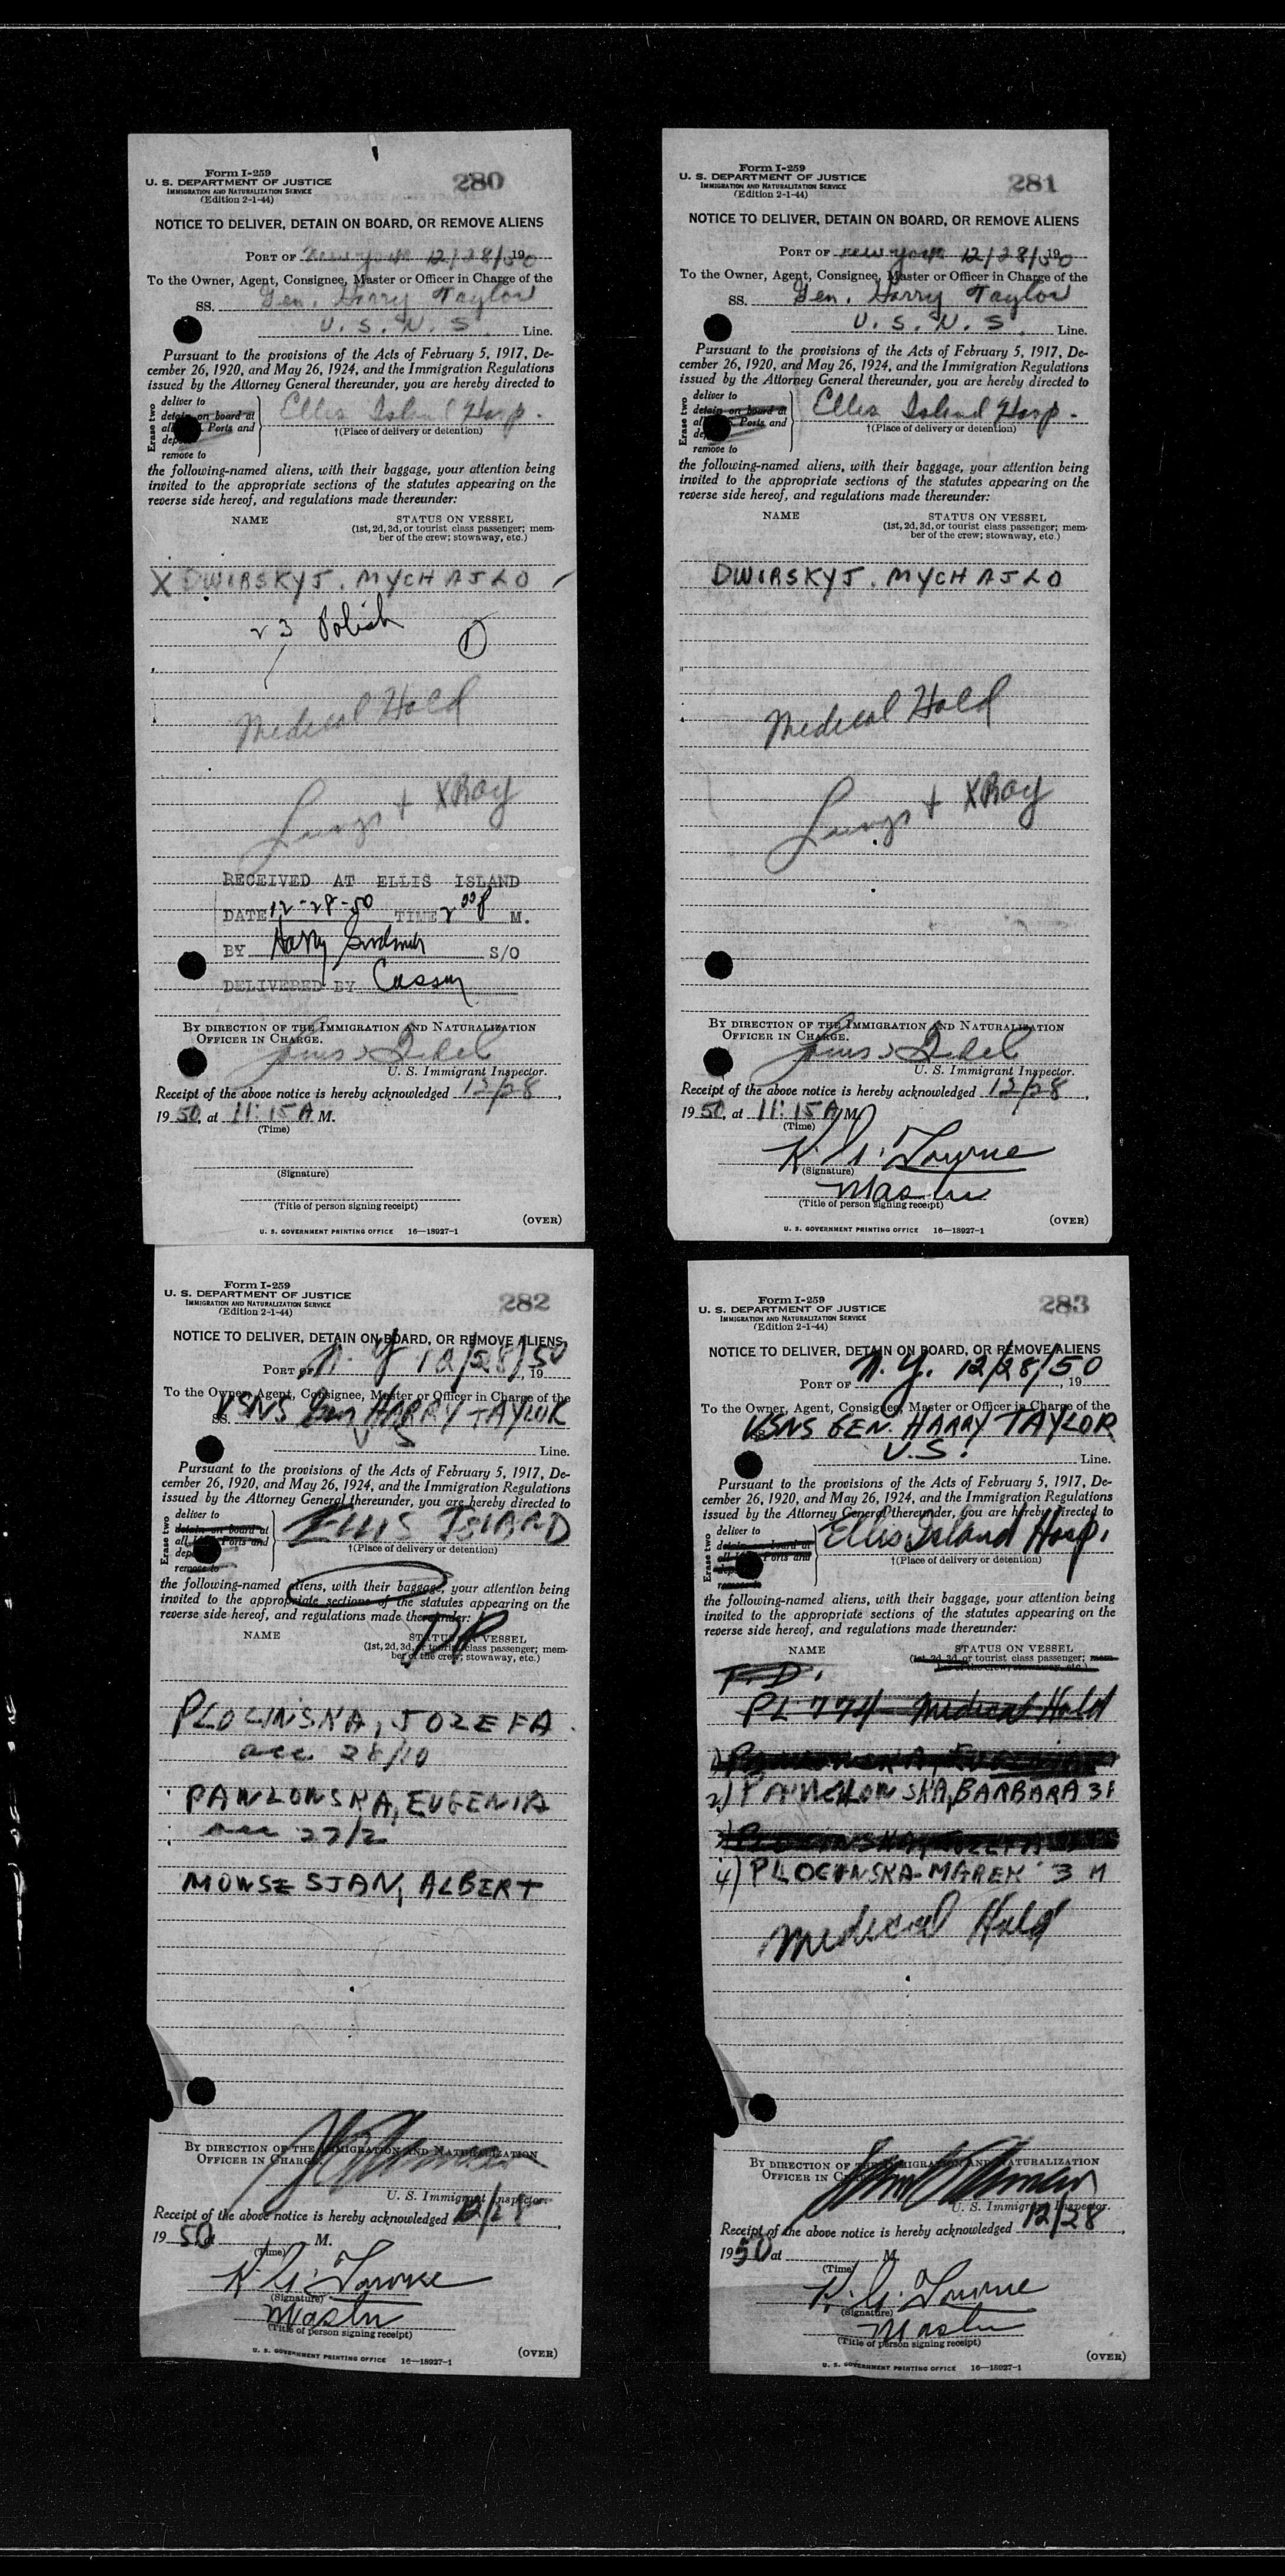 Form I-259
U. S. DEPARTMENT OF JUSTICE
IMMIGRATION AND NATURALIZATION SERVICE
(Edition 2-1-44)
280
NOTICE TO DELIVER, DETAIN ON BOARD, OR REMOVE ALIENS
PORT OF New York 12/28/1950
To the Owner, Agent, Consignee, Master or Officer in Charge of the
SS. Gen. Harry Taylor
U. S. N. S. Line.
Pursuant to the provisions of the Acts of February 5, 1917, De-
cember 26, 1920, and May 26, 1924, and the Immigration Regulations
issued by the Attorney General thereunder, you are hereby directed to
Erase two
deliver to
detain on board at
Ports and
remove to
Ellis Island Hosp.
†(Place of delivery or detention)
the following-named aliens, with their baggage, your attention being
invited to the appropriate sections of the statutes appearing on the
reverse side hereof, and regulations made thereunder:
NAME STATUS ON VESSEL
(1st, 2d, 3d, or tourist class passenger; mem-
ber of the crew; stowaway, etc.)
X DWIRSKYJ. MYCHAJLO
23 Polish
1
Medical Hold
Lungs + XRay
RECEIVED AT ELLIS ISLAND
DATE 12-28-50 TIME 2 00 P M.
BY Harry S/O
DELIVERED BY
BY DIRECTION OF THE IMMIGRATION AND NATURALIZATION
OFFICER IN CHARGE.
U. S. Immigrant Inspector.
Receipt of the above notice is hereby acknowledged 12/28,
19 50, at 11:15 A M.
(Time)
(Signature)
(Title of person signing receipt)
(OVER)
U. S. GOVERNMENT PRINTING OFFICE 16—18927-1
Form I-259
U. S. DEPARTMENT OF JUSTICE
IMMIGRATION AND NATURALIZATION SERVICE
(Edition 2-1-44)
281
NOTICE TO DELIVER, DETAIN ON BOARD, OR REMOVE ALIENS
PORT OF New York 12/28/1950
To the Owner, Agent, Consignee, Master or Officer in Charge of the
SS. Gen. Harry Taylor
U. S. N. S. Line.
Pursuant to the provisions of the Acts of February 5, 1917, De-
cember 26, 1920, and May 26, 1924, and the Immigration Regulations
issued by the Attorney General thereunder, you are hereby directed to
Erase two
deliver to
detain on board at
Ports and
remove to
Ellis Island Hosp.
†(Place of delivery or detention)
the following-named aliens, with their baggage, your attention being
invited to the appropriate sections of the statutes appearing on the
reverse side hereof, and regulations made thereunder:
NAME STATUS ON VESSEL
(1st, 2d, 3d, or tourist class passenger; mem-
ber of the crew; stowaway, etc.)
DWIRSKYJ. MYCHAJLO
Medical Hold
Lungs + XRay
BY DIRECTION OF THE IMMIGRATION AND NATURALIZATION
OFFICER IN CHARGE.
U. S. Immigrant Inspector.
Receipt of the above notice is hereby acknowledged 12/28,
19 50, at 11:15 A M.
(Time)
K. G. Towne
(Signature)
Master
(Title of person signing receipt)
(OVER)
U. S. GOVERNMENT PRINTING OFFICE 16—18927-1
Form I-259
U. S. DEPARTMENT OF JUSTICE
IMMIGRATION AND NATURALIZATION SERVICE
(Edition 2-1-44)
282
NOTICE TO DELIVER, DETAIN ON BOARD, OR REMOVE ALIENS
PORT OF N. Y 12/28/50, 19
To the Owner, Agent, Consignee, Master or Officer in Charge of the
SS. USNS Gen HARRY TAYLOR
U S Line.
Pursuant to the provisions of the Acts of February 5, 1917, De-
cember 26, 1920, and May 26, 1924, and the Immigration Regulations
issued by the Attorney General thereunder, you are hereby directed to
Erase two
deliver to
detain on board at
all Ports and
remove to
ELLIS ISLAND
†(Place of delivery or detention)
the following-named aliens, with their baggage, your attention being
invited to the appropriate sections of the statutes appearing on the
reverse side hereof, and regulations made thereunder:
DP
NAME STATUS ON VESSEL
(1st, 2d, 3d, or tourist class passenger; mem-
ber of the crew; stowaway, etc.)
PLOCINSKA, JOZEFA
acc. 28/10
PAWLONSKA, EUGENIA
acc 27/2
MOWSESJAN, ALBERT
BY DIRECTION OF THE IMMIGRATION AND NATURALIZATION
OFFICER IN CHARGE.
U. S. Immigrant Inspector.
Receipt of the above notice is hereby acknowledged 12/28,
19 50 at M.
(Time)
K. G. Towne
(Signature)
Master
(Title of person signing receipt)
(OVER)
U. S. GOVERNMENT PRINTING OFFICE 16—18927-1
Form I-259
U. S. DEPARTMENT OF JUSTICE
IMMIGRATION AND NATURALIZATION SERVICE
(Edition 2-1-44)
283
NOTICE TO DELIVER, DETAIN ON BOARD, OR REMOVE ALIENS
PORT OF N. Y. 12/28/50, 19
To the Owner, Agent, Consignee, Master or Officer in Charge of the
USNS GEN. HARRY TAYLOR
U.S. Line.
Pursuant to the provisions of the Acts of February 5, 1917, De-
cember 26, 1920, and May 26, 1924, and the Immigration Regulations
issued by the Attorney General thereunder, you are hereby directed to
Erase two
deliver to
detain on board at
Ports and
remove to
Ellis Island Hosp.
†(Place of delivery or detention)
the following-named aliens, with their baggage, your attention being
invited to the appropriate sections of the statutes appearing on the
reverse side hereof, and regulations made thereunder:
NAME STATUS ON VESSEL
(1st, 2d, 3d, or tourist class passenger; mem-
ber of the crew; stowaway, etc.)
PL 774 Medical Hold
2) BARBARA
4) PLOCINSKA-MAREK 3 M
Medical Hold
BY DIRECTION OF THE IMMIGRATION AND NATURALIZATION
OFFICER IN CHARGE.
U. S. Immigrant Inspector.
Receipt of the above notice is hereby acknowledged 12/28,
1950 at M.
(Time)
K. G. Towne
(Signature)
Master
(Title of person signing receipt)
(OVER)
U. S. GOVERNMENT PRINTING OFFICE 16—18927-1